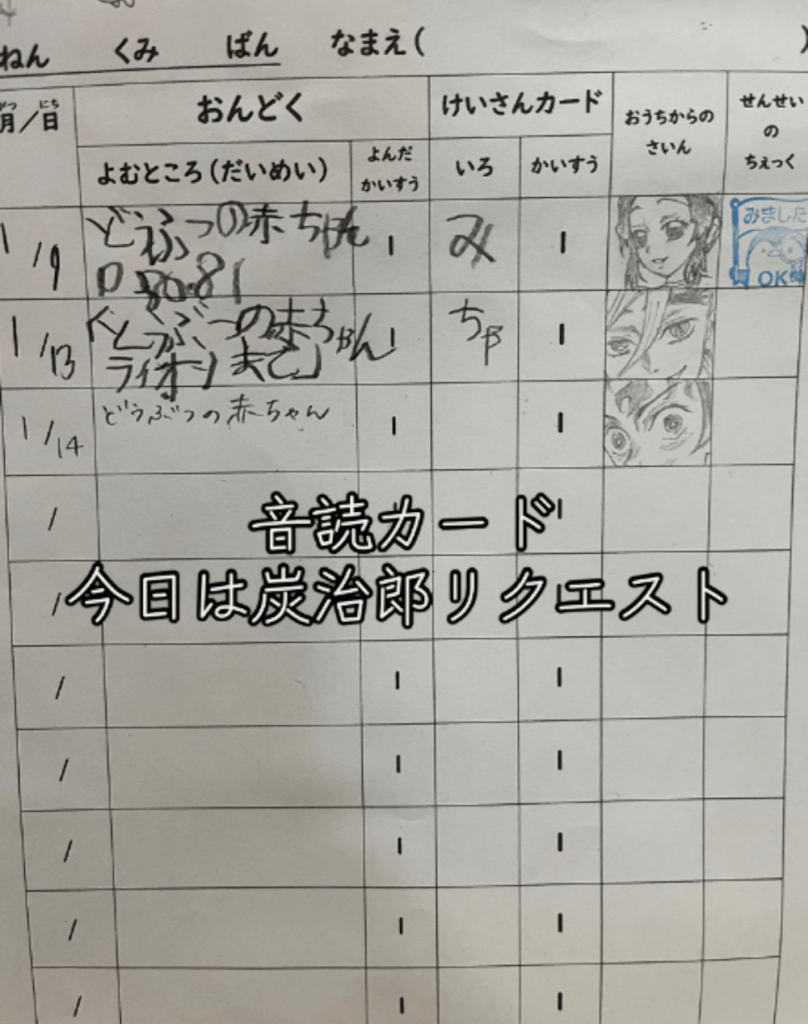 ねん くみ ばん なまえ( )
がつ にち
月/日
おんどく
けいさんカード
おうちからの
さいん
せんせい
の
ちぇっく
よむところ(だいめい)
よんだ
かいすう
いろ
かいすう
1/9
どふつの赤ちゃん
P80.81
1
み
1
みました
OK
1/13
どぶつの赤ちゃん
ライオンまで」
1
ちゃ
1
1/14
どうぶつの赤ちゃん
1
1
/
音読カード
/
今日は炭治郎リクエスト
/ 1 1
/ 1 1
/ 1 1
/ 1 1
/ 1 1